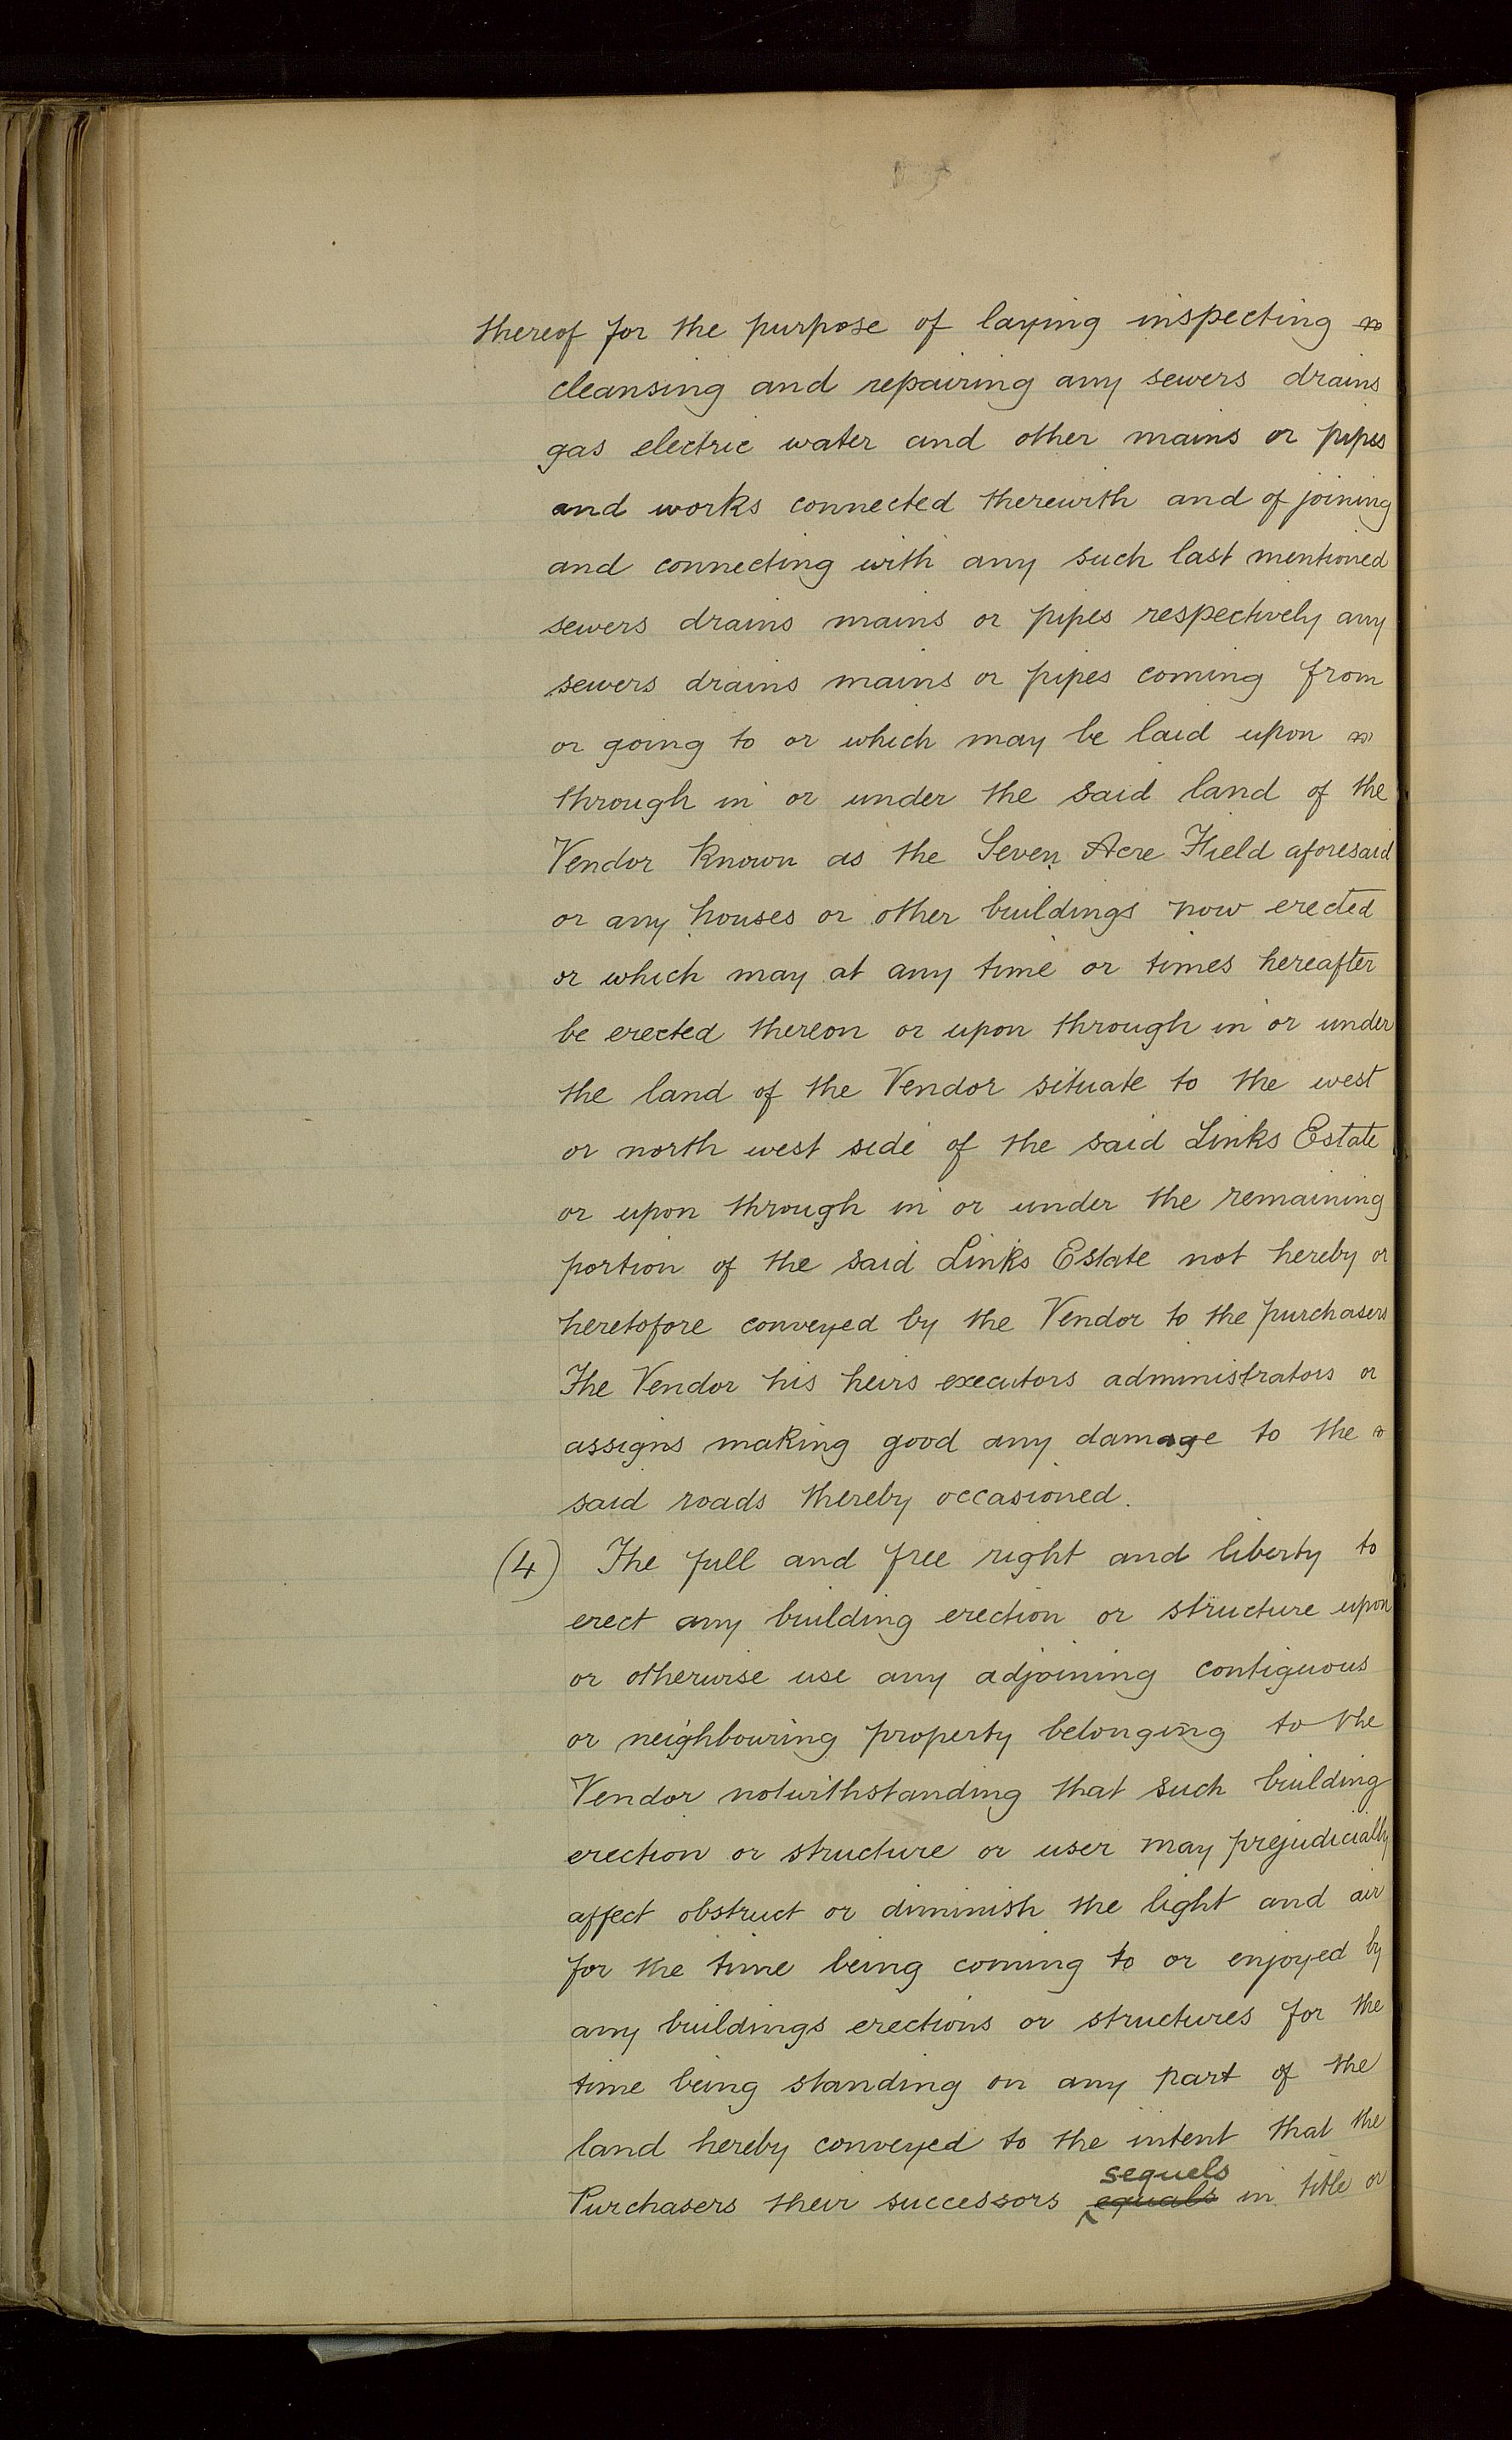 thereof for the purpose of laying inspecting
cleansing and repairing any sewers drains
gas electric water and other mains or pipes
and works connected therewith and of joining
and connecting with any such last mentioned
sewers drains mains or pipes respectively any
sewers drains mains or pipes coming from
or going to or which may be laid upon
through in or under the said land of the
Vendor known as the Seven Acre Field aforesaid
or any houses or other buildings now erected
or which may at any time or times hereafter
be erected thereon or upon through in or under
the land of the Vendor situate to the west
or north west side of the said Links Estate
or upon through in or under the remaining
portion of the said Links Estate not hereby or
heretofore conveyed by the Vendor to the purchasers
The Vendor his heirs executors administrators or
assigns making good any damage to the
said roads thereby occasioned.
(4) The full and free right and liberty to
erect any building erection or structure upon
or otherwise use any adjoining contiguous
or neighbouring property belonging to the
Vendor notwithstanding that such building
erection or structure or user may prejudicially
affect obstruct or diminish the light and air
for the time being coming to or enjoyed by
any buildings erections or structures for the
time being standing on any part of the
land hereby conveyed to the intent that the
sequels
Purchasers their successors equals in title or